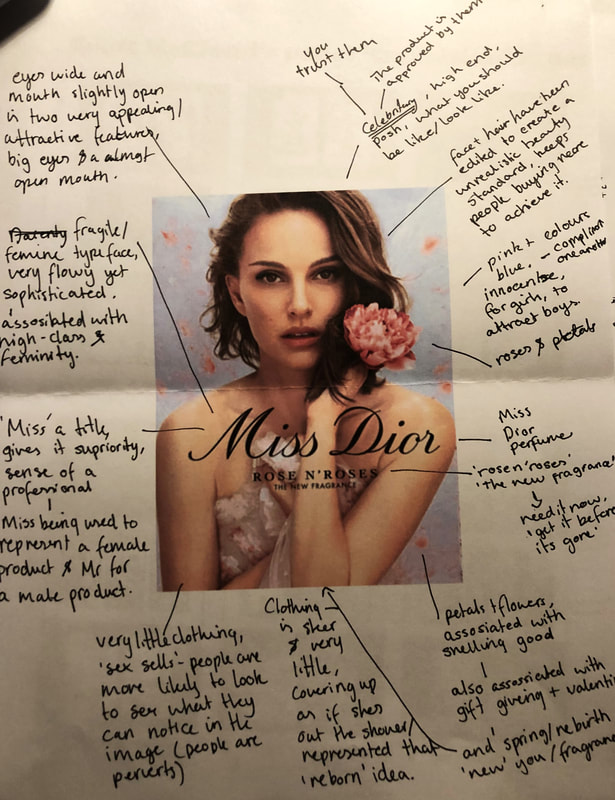 eyes wide and
mouth slightly open
is two very appealing/
attractive features,
big eyes & a almost
open mouth.
fragile/
femine typeface,
very flowy yet
sophisticated.
assosiated with
high-class &
feminity.
'Miss' a title,
gives it supriority,
sense of a
professional
Miss being used to
represent a female
product & Mr for
a male product.
very little clothing,
'sex sells' - people are
more likely to look
to see what they
can notice in the
image (people are
perverts)
Clothing
is sheer
& very
little,
covering up
as if shes
out the shower/
represented that
'reborn' idea.
you
trust them
The product is
approved by them
Celebritary, high end,
posh, what you should
be like/look like.
face & hair have been
edited to create a
unrealistic beauty
standard, keeps
people buying more
to achieve it.
pink + colours
blue, - compliment
oneanother
innocentse,
for girls, to
attract boys.
roses & petals
Miss
Dior
perfume
'rose n' roses'
'the new fragrance'
need it now,
'get it before
its gone'
petals + flowers,
assosiated with
smelling good
also assosiated with
gift giving + valentin
and spring/rebirth
'new' you/fragran
Miss Dior
ROSE N'ROSES
THE NEW FRAGRANCE